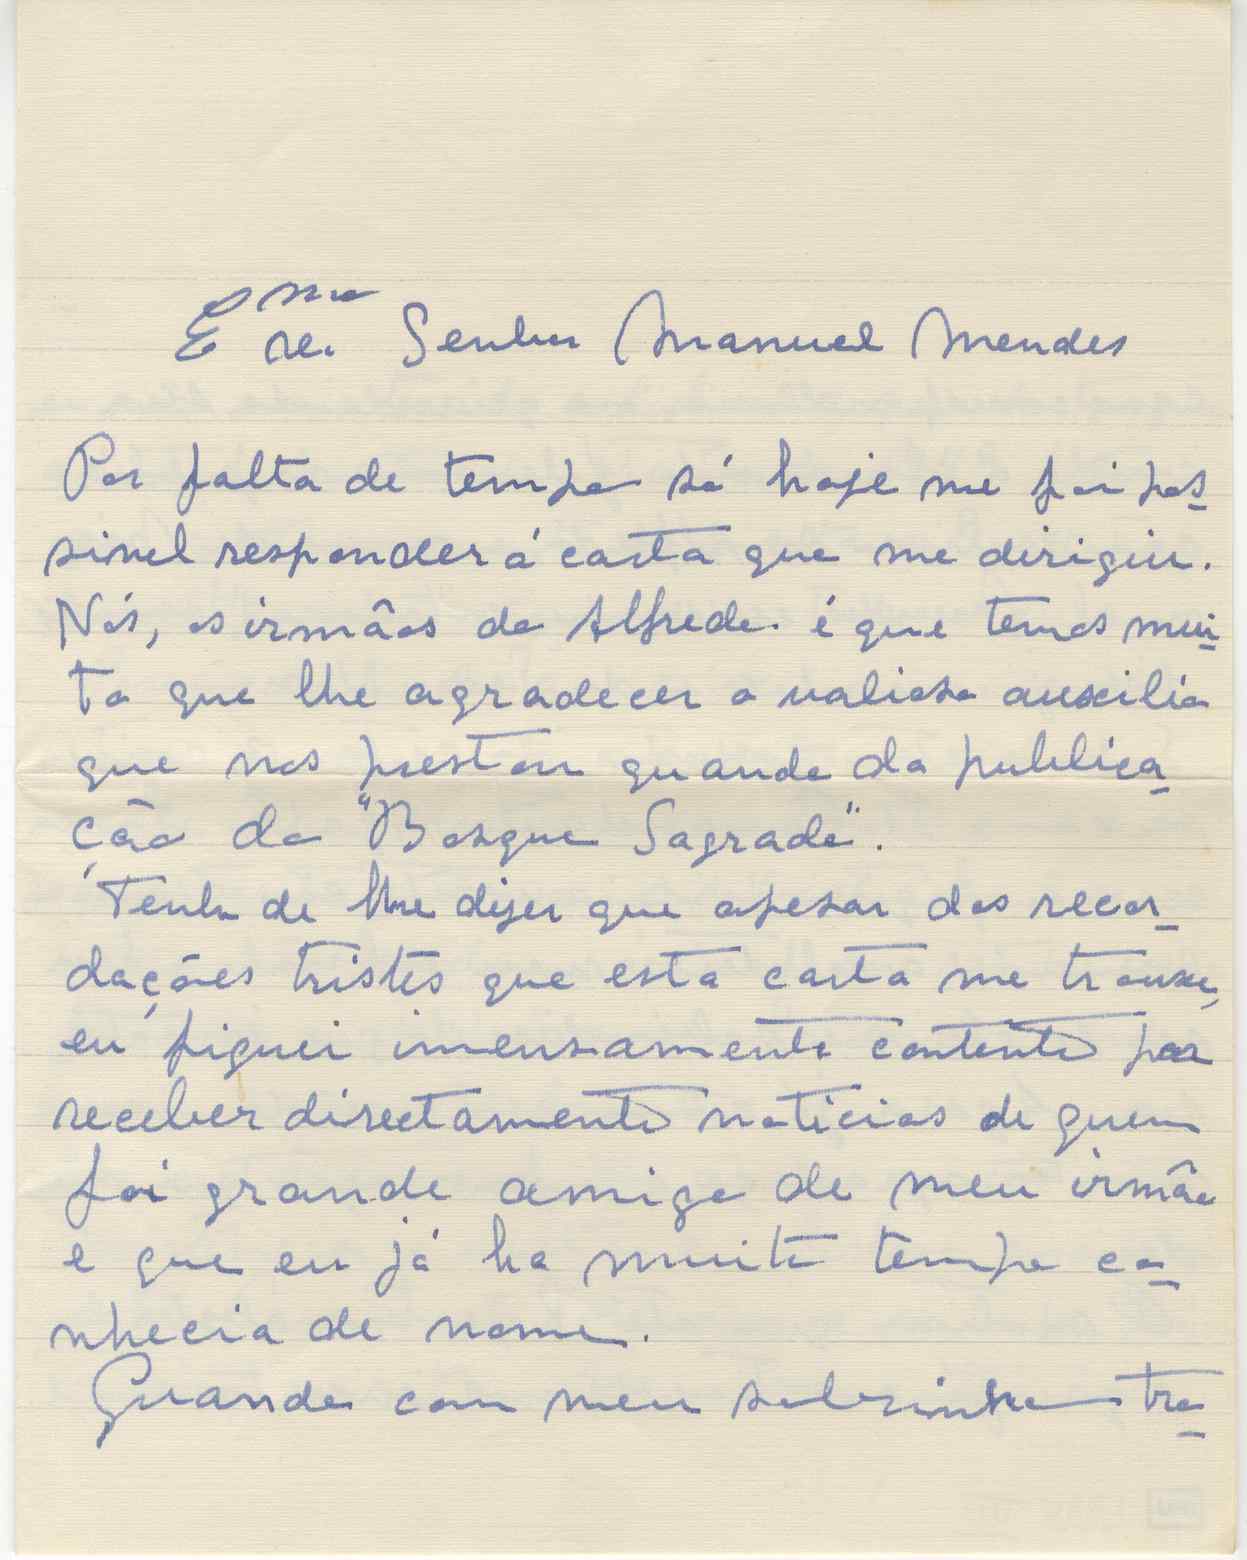 Exmo Senhor Manuel Mendes
Por falta de tempo só hoje me foi pos-
sivel responder á carta que me dirigiu.
Nós, os irmãos do Alfredo é que temos mui-
to que lhe agradecer o valioso auxilio
que nos prestou quando da publica-
ção do "Bosque Sagrado".
Tenho de lhe dizer que apesar das recor-
dações tristes que esta carta me trouxe,
eu fiquei imensamente contente por
receber directamente noticias de quem
foi grande amigo de meu irmão
e que eu já ha muito tempo co-
nhecia de nome.
Quando com meu sobrinho tra-